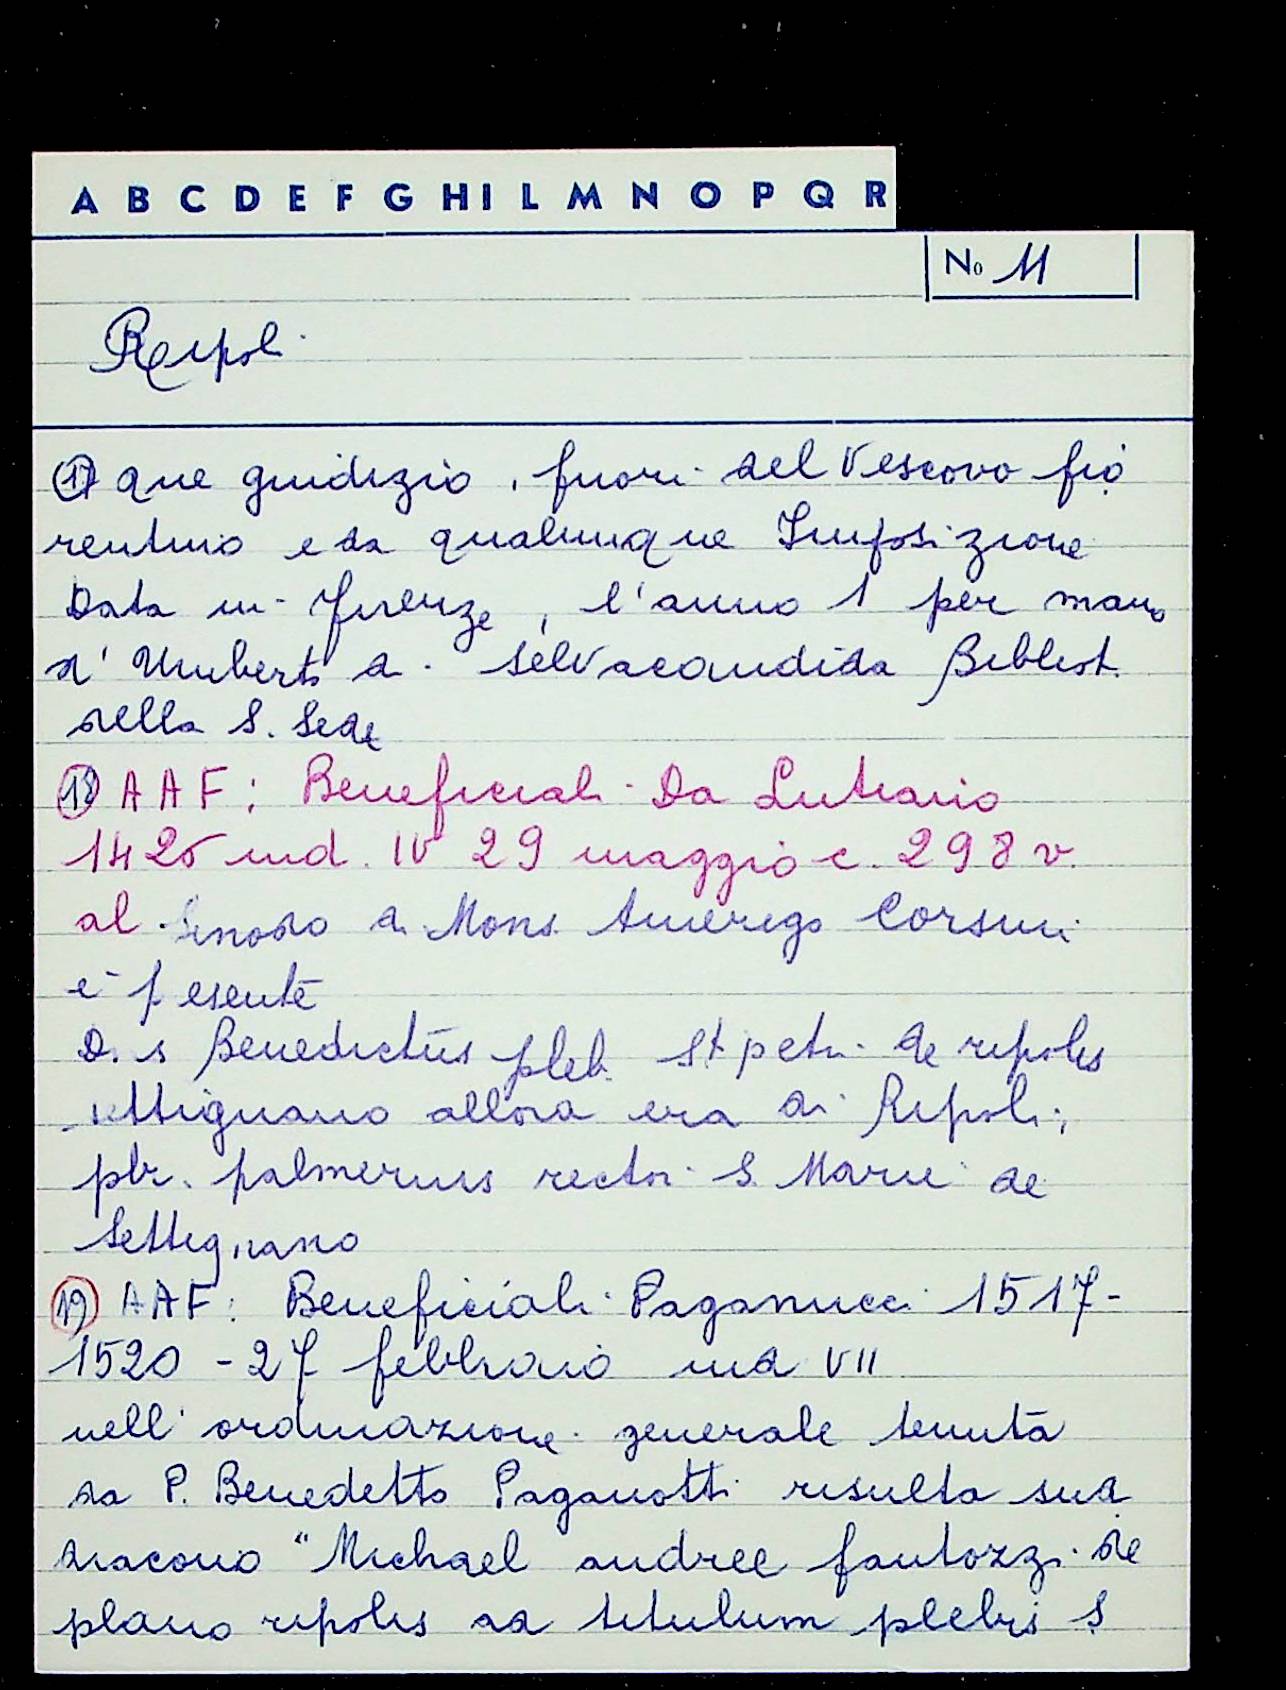 A B C D E F G H I L M N O P Q R
No 11
Ripoli
17) que giudizio, fuori del Vescovo fio
rentino e da qualunque Imposizione
Data in Firenze, l'anno 1 per mano
d'Umberto di Selvacandida Bibliot.
della S. Sede
18) AAF: Beneficiali Da Lutiano
1426 ind. IV 29 maggio c. 298 v.
al Sinodo di Mons. Amerigo Corsini
è presente
D.s Benedictus pleb. St petri de ripolis
settignano allora era di Ripoli;
pbr. palmerius rector S. Marie de
Settignano
19) AAF: Beneficiali Paganucci 1517-
1520 - 27 febbraio ind VII
nell'ordinazione generale tenuta
da P. Benedetto Paganotti risulta sud
diacono "Michael andree fantozzi de
plano ripolis ad titulum plebis S